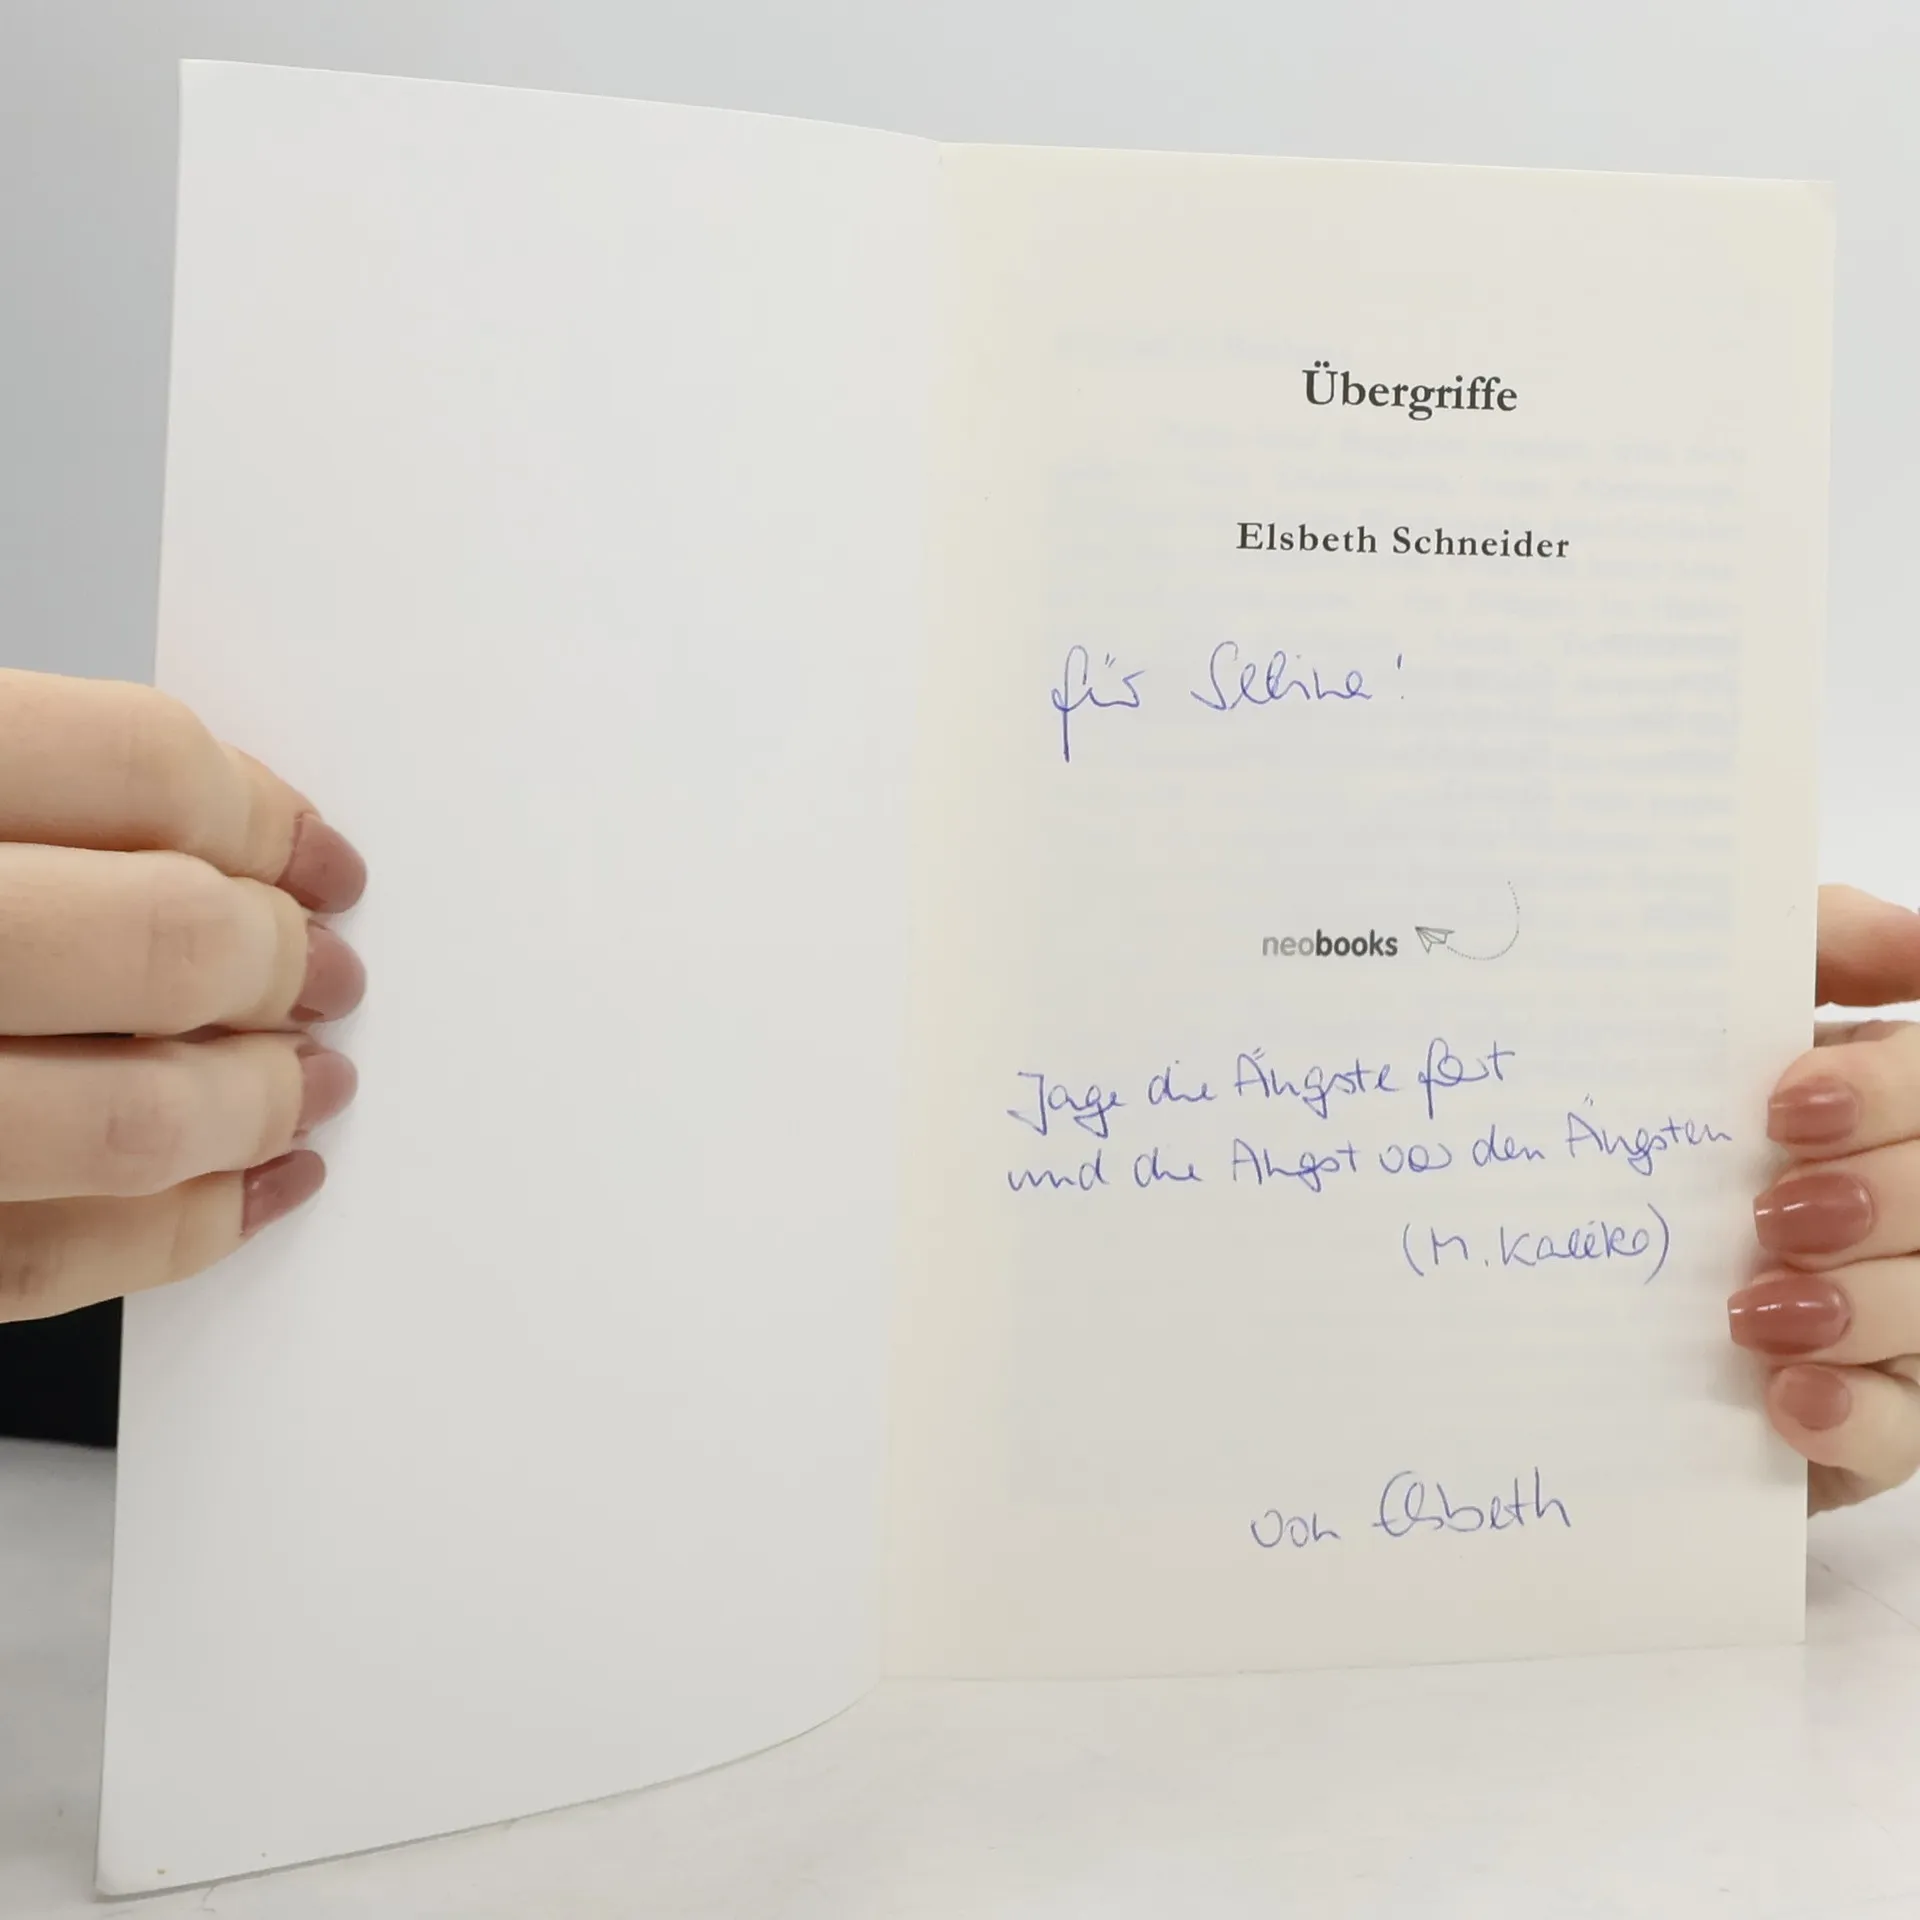 Übergriffe
Elsbeth Schneider
für Sabine!
neobooks
Jage die Ängste fort
und die Angst vor den Ängsten
(M. Kaléko)
von Elsbeth